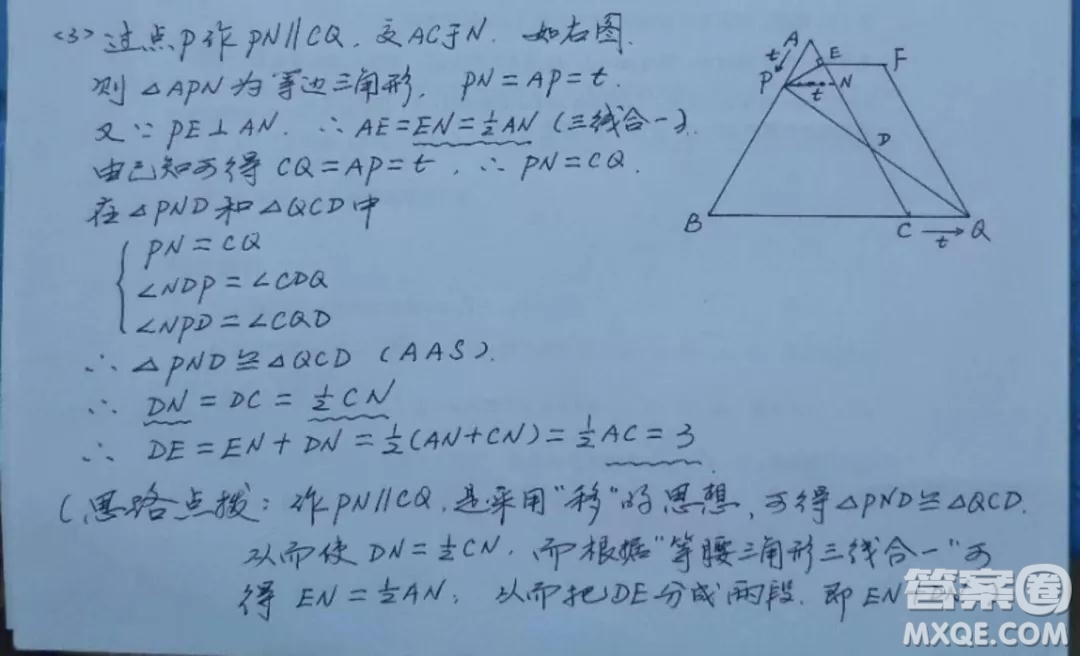 <3> 过点P作PN∥CQ,交AC于N. 如右图.
则△APN为等边三角形, PN=AP=t.
又∵PE⊥AN. ∴AE=EN=½AN (三线合一).
由已知可得 CQ=AP=t, ∴PN=CQ.
在△PND和△QCD中
PN=CQ
∠NDP=∠CDQ
∠NPD=∠CQD
∴△PND≌△QCD (AAS).
∴ DN=DC=½CN
∴ DE=EN+DN=½(AN+CN)=½AC=3.
(思路点拨: 作PN∥CQ,是采用"移"的思想,可得△PND≌△QCD.
从而使DN=½CN. 而根据"等腰三角形三线合一"可
得EN=½AN; 从而把DE分成两段. 即EN
A
t
E
F
P
t
N
D
B
C
t
Q
答案圈
MXQE.COM